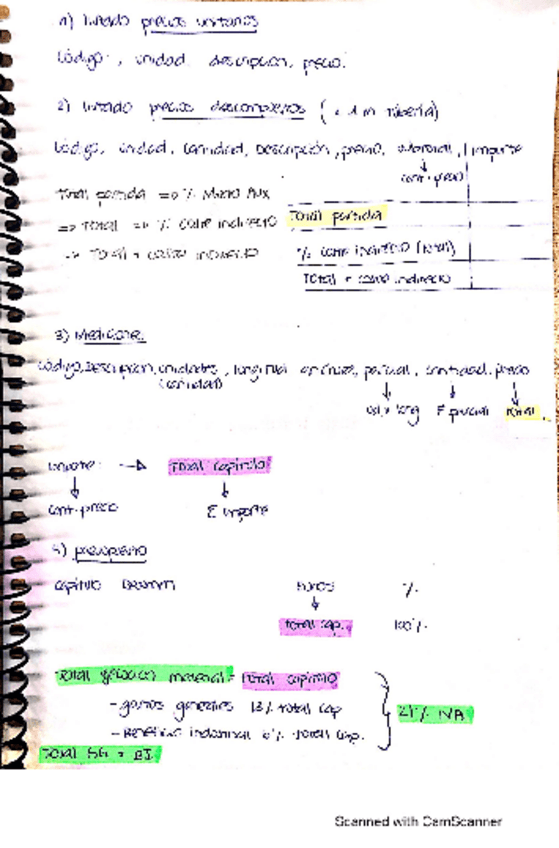 1) listado precios unitarios
Código, unidad descripción, precio.
2) listado precios descompuestos ( 1 m tubería)
Código, unidad, cantidad, Descripción, precio, subtotal, importe
cont·precio
Total partida => % Medio Aux
=> Total => % coste indirecto
Total partida
-> Total + coste indirecto
% coste indirecto (total)
Total + coste indirecto
3) Mediciones
Código, Descripción, unidades, longitud anchura, parcial, cantidad, precio
(cantidad)
ud x long Σ parcial total
importe: -> Total capítulo
cant·precio Σ importe
4) presupuesto
capítulo Resumen euros %
Total cap. 100%
Total ejecución material = Total capítulo
- gastos generales 13% total cap
21% IVA
- Beneficio industrial 6% total cap.
Total GG + BI
Scanned with CamScanner